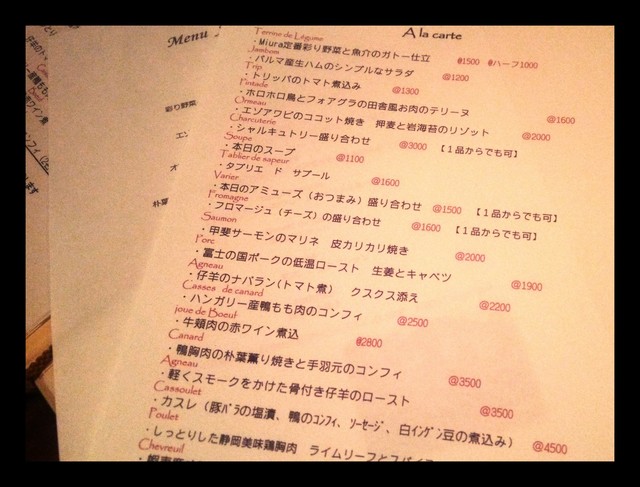 Menu
A la carte
Terrine de Légume
・Miura定番彩り野菜と魚介のガトー仕立 @1500 @ハーフ1000
Jambom
・パルマ産生ハムのシンプルなサラダ @1200
Trip
・トリッパのトマト煮込み @1300
Pintade
・ホロホロ鳥とフォアグラの田舎風お肉のテリーヌ @1600
Ormeau
・エゾアワビのココット焼き 押麦と岩海苔のリゾット @2000
Charcuterie
・シャルキュトリー盛り合わせ @3000 【1品からでも可】
Soupe
・本日のスープ @1100
Tablier de sapeur
・タブリエ ド サプール @1600
Varier
・本日のアミューズ（おつまみ）盛り合わせ @1500 【1品からでも可】
Fromagne
・フロマージュ（チーズ）の盛り合わせ @1600 【1品からでも可】
Saumon
・甲斐サーモンのマリネ 皮カリカリ焼き @2000
Porc
・富士の国ポークの低温ロースト 生姜とキャベツ @1900
Agneau
・仔羊のナバラン(トマト煮) クスクス添え @2200
Casses de canard
・ハンガリー産鴨もも肉のコンフィ @2500
joue de Boeuf
・牛頬肉の赤ワイン煮込 @2800
Canard
・鴨胸肉の朴葉薫り焼きと手羽元のコンフィ @3500
Agneau
・軽くスモークをかけた骨付き仔羊のロースト @3500
Cassoulet
・カスレ（豚ﾊﾞﾗの塩漬、鴨のｺﾝﾌｨ、ｿｰｾｰｼﾞ、白ｲﾝｹﾞﾝ豆の煮込み） @4500
Poulet
・しっとりした静岡美味鶏胸肉 ライムリーフとスパイス
Chevreuil
彩り野菜
エン
オ
朴葉